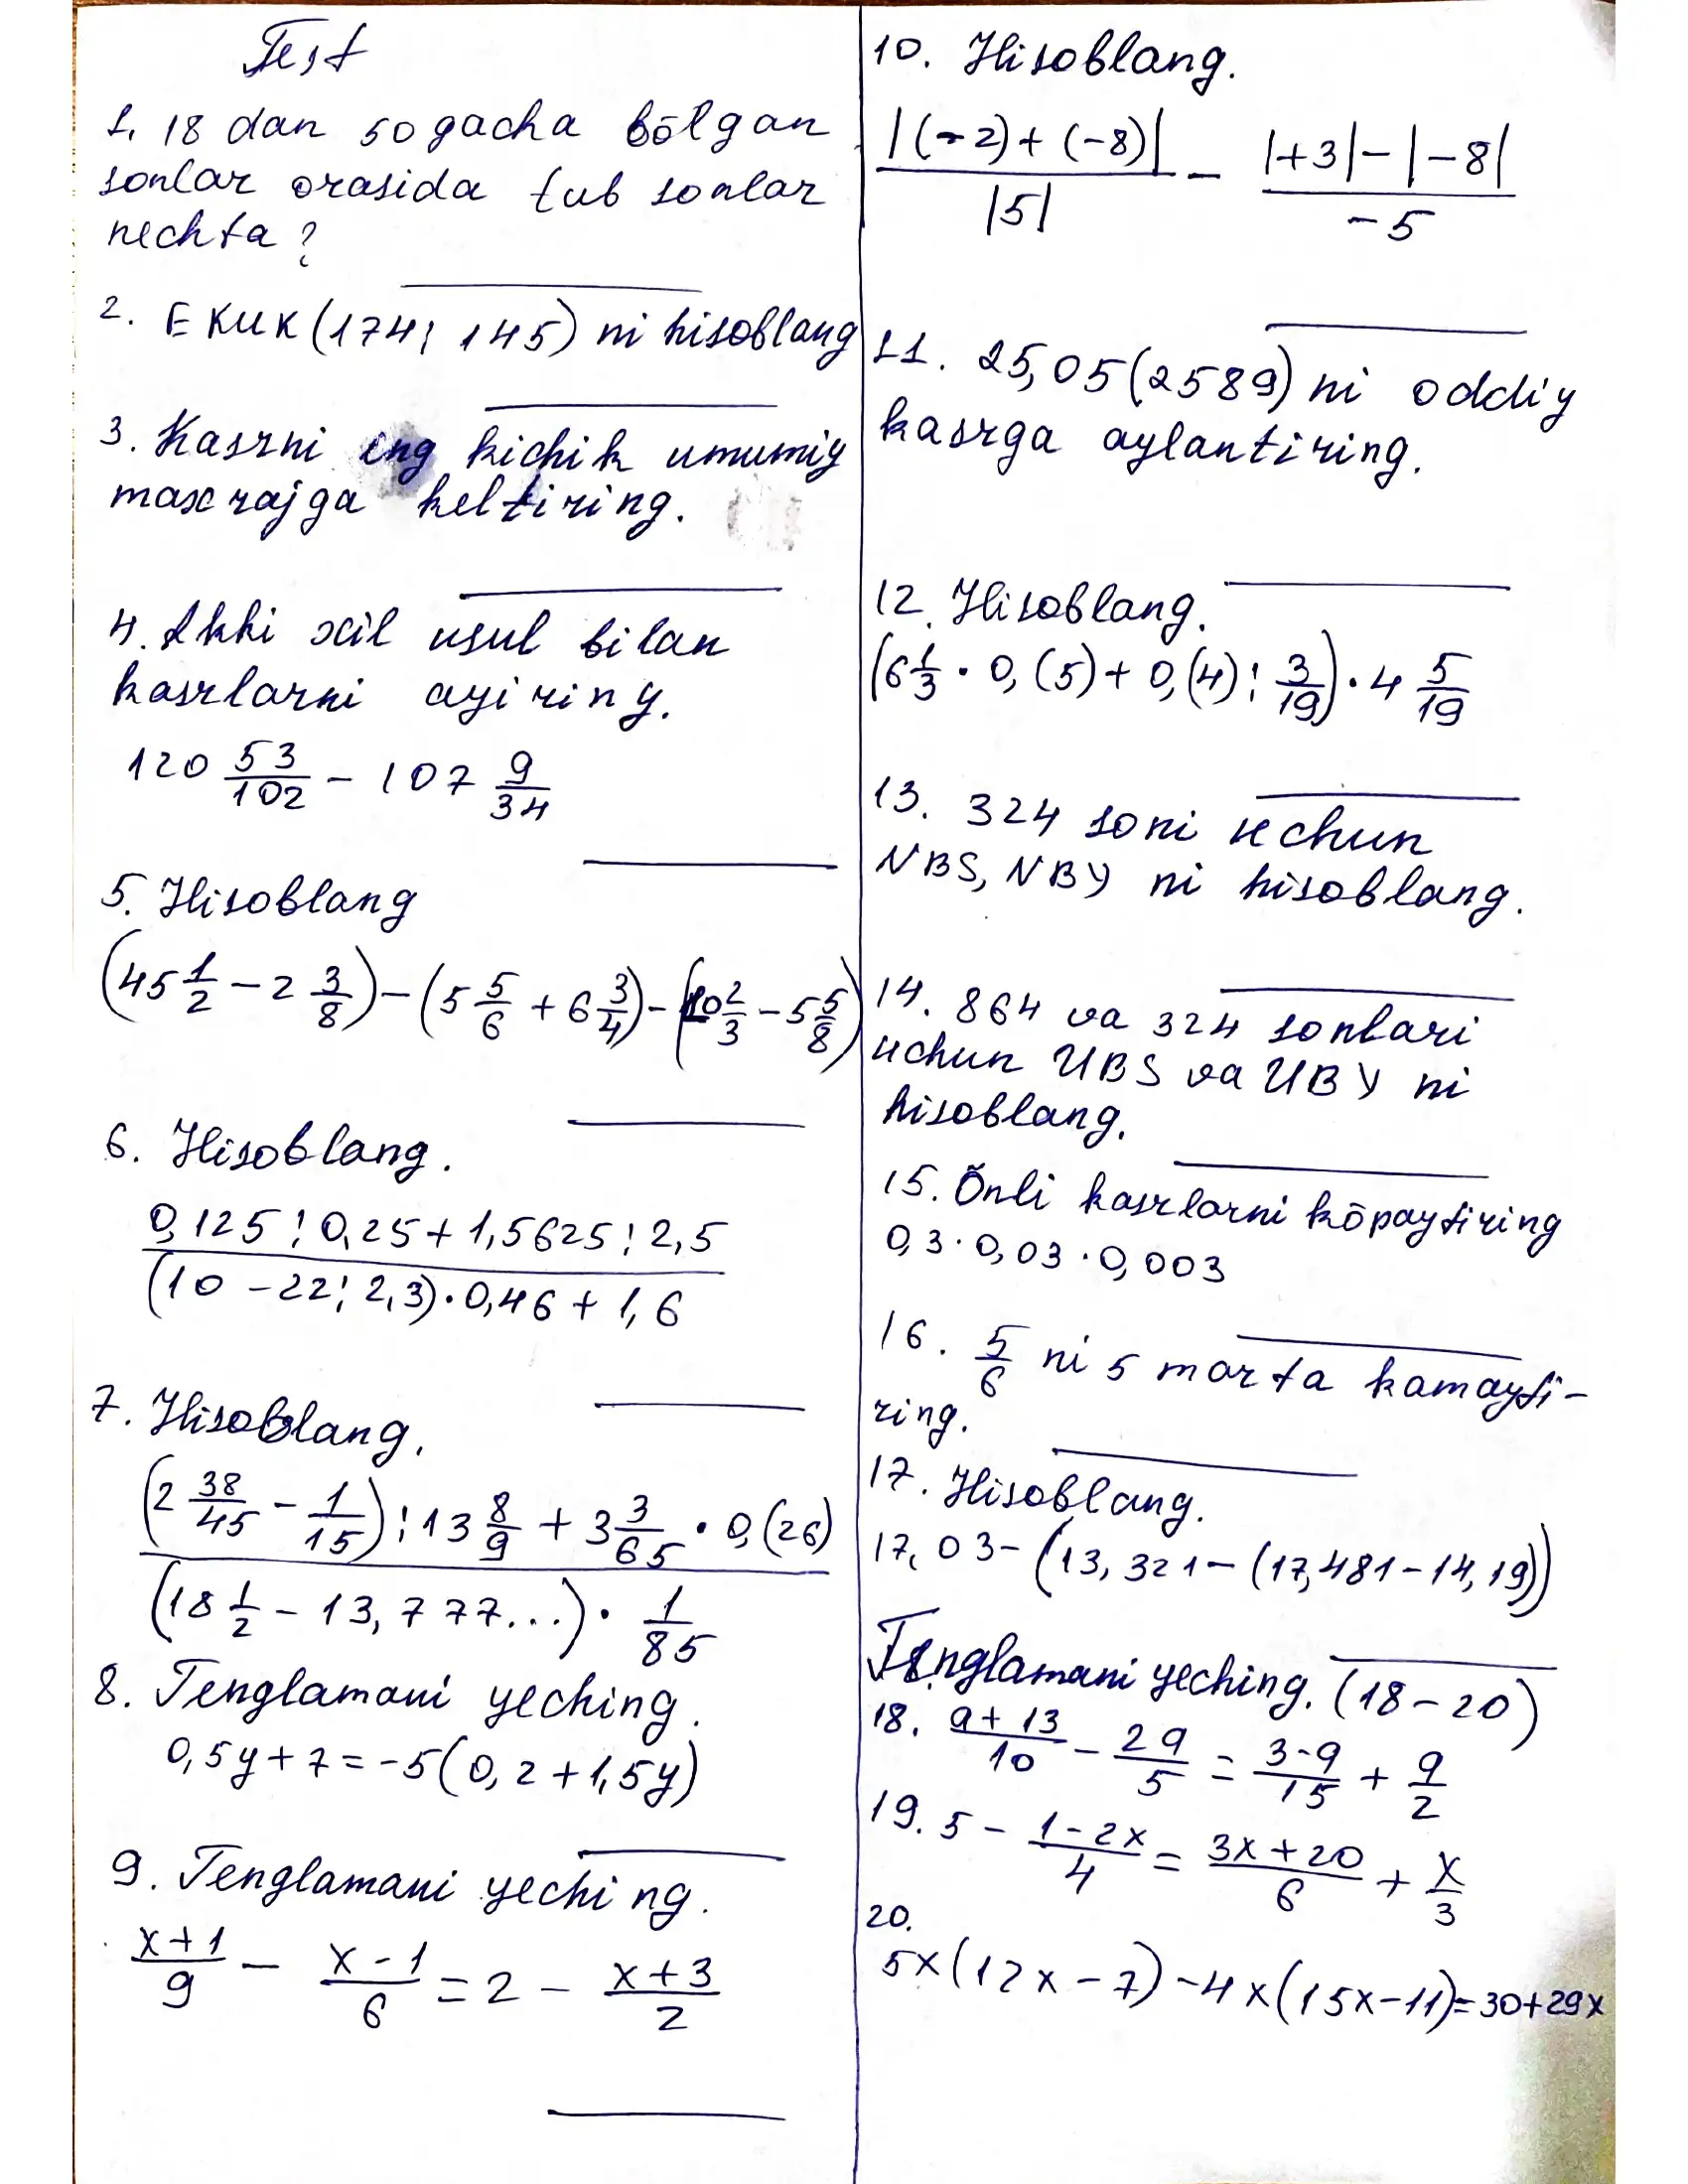 Test
1. 18 dan 50 gacha bōlgan
sonlar orasida tub sonlar
nechta?
2. EKUK(174; 145) ni hisoblang
3. Kasrni eng kichik umumiy
maxrajga keltiring.
4. Ikki xil usul bilan
kasrlarni ayiring.
120 53/102 - 107 9/34
5. Hisoblang
(45 1/2 - 2 3/8) - (5 5/6 + 6 3/4) - (10 2/3 - 5 5/8)
6. Hisoblang.
0,125 : 0,25 + 1,5625 : 2,5
(10 - 22 : 2,3) · 0,46 + 1,6
7. Hisoblang.
(2 38/45 - 1/15) : 13 8/9 + 3 3/65 · 0,(26)
(18 1/2 - 13,777...) · 1/85
8. Tenglamani yeching.
0,5y + 7 = -5(0,2 + 1,5y)
9. Tenglamani yeching.
(x+1)/9 - (x-1)/6 = 2 - (x+3)/2
10. Hisoblang.
|(-2) + (-8)|/|5| - (|+3| - |-8|)/-5
11. 25,05(2589) ni oddiy
kasrga aylantiring.
12. Hisoblang.
(6 1/3 · 0,(5) + 0,(4) : 3/19) · 4 5/19
13. 324 soni uchun
NBS, NBY ni hisoblang.
14. 864 va 324 sonlari
uchun UBS va UBY ni
hisoblang.
15. Ōnli kasrlarni kōpaytiring
0,3 · 0,03 · 0,003
16. 5/6 ni 5 marta kamayti-
ring.
17. Hisoblang.
17,03 - (13,321 - (17,481 - 14,19))
Tenglamani yeching. (18 - 20)
18. (a+13)/10 - 2a/5 = (3-a)/15 + a/2
19. 5 - (1-2x)/4 = (3x+20)/6 + x/3
20.
5x(12x - 7) - 4x(15x - 11) = 30 + 29x